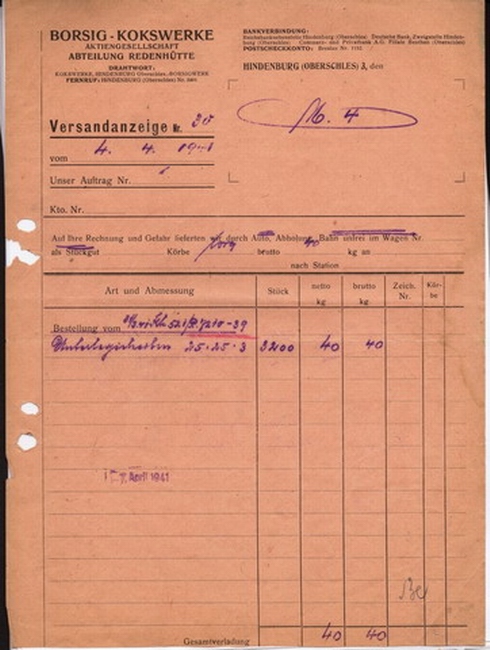 BORSIG-KOKSWERKE
AKTIENGESELLSCHAFT
ABTEILUNG REDENHÜTTE
DRAHTWORT:
KOKSWERKE, HINDENBURG (Oberschles.-BORSIGWERK
FERNRUF: HINDENBURG (Oberschles.) Nr.
BANKVERBINDUNG:
Reichsbanknebenstelle Hindenburg (Oberschles.) Deutsche Bank, Zweigstelle Hinden-
burg (Oberschles.) Commerz- und Privatbank A.G. Filiale Beuthen (Oberschles.)
POSTSCHECKKONTO: Breslau Nr.
HINDENBURG (OBERSCHLES) 3, den
M. 4
Versandanzeige Nr. 30
vom 4. 4. 1941
Unser Auftrag Nr.
Kto. Nr.
Auf Ihre Rechnung und Gefahr lieferten wir durch Auto, Abholung Bahn unfrei im Wagen Nr.
als Stückgut Körbe brutto 40 kg an
nach Station
Art und Abmessung Stück netto kg brutto kg Zeich. Nr. Kör-be
Bestellung vom
Unterlegscheiben 25·25·3 3200 40 40
7. April 1941
Gesamtverladung 40 40